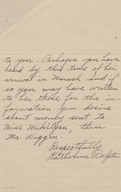 to you. Perhaps you have
heard by this time of her
arrival in Marash and if
so you may have written
to her there for the in-
formation you desire
about money sent to
Miss
Mr.
Respectfully
Katherine